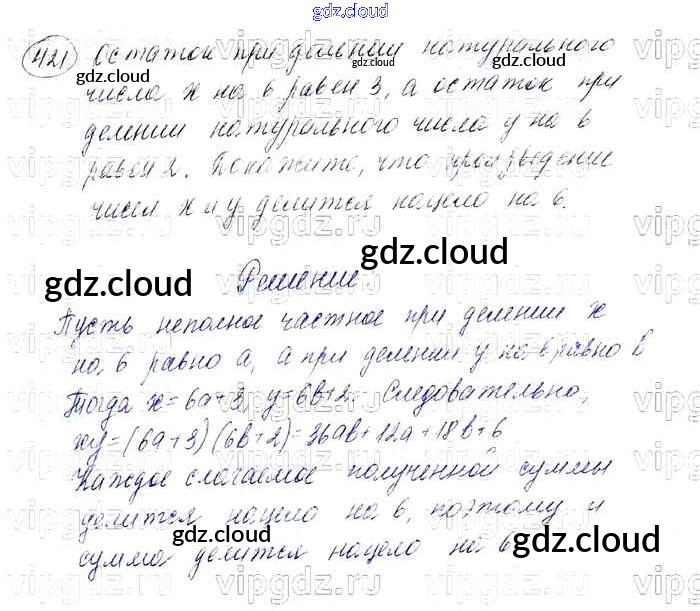 gdz.cloud
421 Остаток при делении натурального
числа x на 6 равен 3, а остаток при
делении натурального числа y на 6
равен 2. Докажите, что произведение
чисел x и y делится нацело на 6.
Решение
Пусть неполное частное при делении x
на 6 равно a, а при делении y на 6 равно b
Тогда x=6a+3, y=6b+2. Следовательно,
xy=(6a+3)(6b+2)=36ab+12a+18b+6
Каждое слагаемое полученной суммы
делится нацело на 6, поэтому и
сумма делится нацело на 6